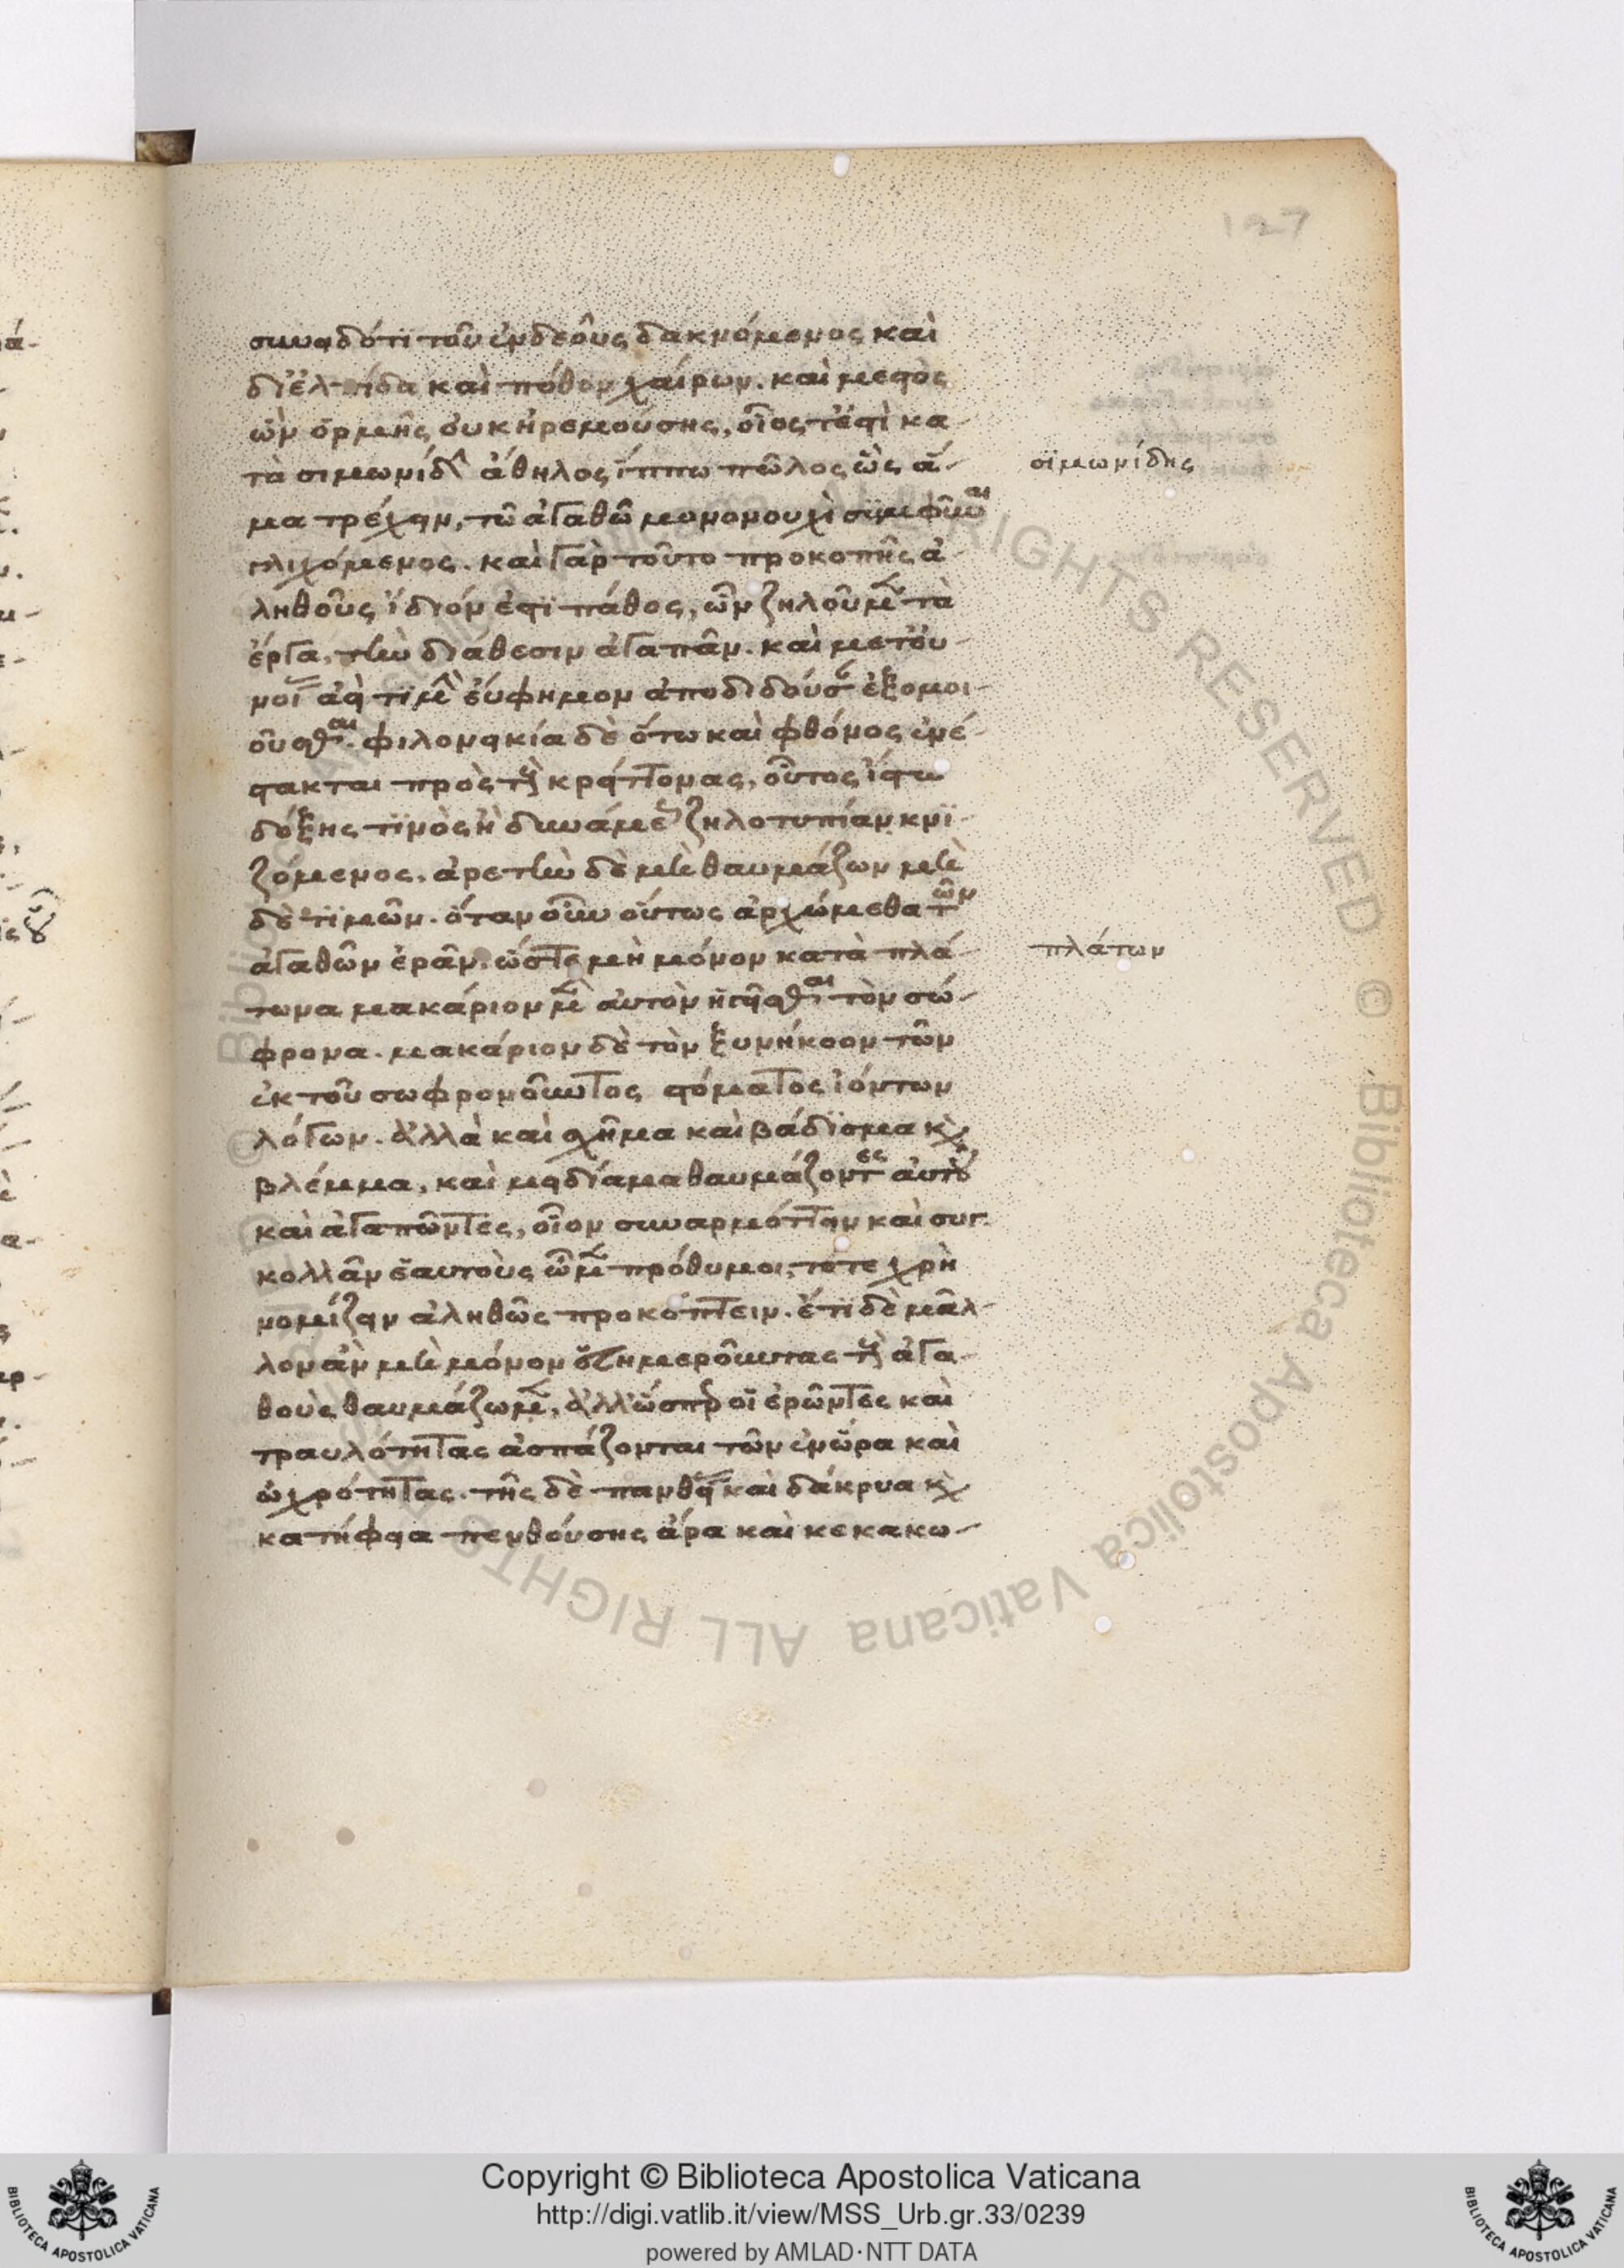 127
συνειδότι τοῦ ἐνδεοῦς δακνόμενος καὶ
δι' ἐλπίδα καὶ πόθον χαίρων. καὶ μεστὸς
ὢν ὁρμῆς οὐκ ἠρεμούσης, οἷός τέ ἐστὶ κα-
τὰ σιμωνίδην ἄθηλος ἵππω πῶλος ὣς ἅ- σϊμωνίδης
μα τρέχειν, τῶ ἀγαθῶ μονονουχὶ συμφῦναι
γλιχόμενος. καὶ γὰρ τοῦτο προκοπῆς ἀ-
ληθοῦς ἴδιόν ἐστι πάθος, ὧν ζηλοῦμεν τὰ
ἔργα, τὴν διάθεσιν ἀγαπᾶν. καὶ μετ' εὐ-
νοίας ἀεὶ τιμὴν εὔφημον ἀποδιδούσης ἐξομοι-
οῦσθαι. φιλονεικία δὲ ὅτω καὶ φθόνος ἐνέ-
στακται πρὸς τοὺς κρείττονας, οὗτος ἴστω
δόξης τινὸς ἢ δυνάμεως ζηλοτυπίαν κνι-
ζόμενος, ἀρετὴν δὲ μὴ θαυμάζων μὴ
δὲ τϊμῶν. ὅταν οὖν οὕτως ἀρχώμεθα τῶν
ἀγαθῶν ἐρᾶν, ὥστε μὴ μόνον κατὰ πλά- πλάτων
τωνα μακάριον μὲν αὐτὸν ἡγεῖσθαι τὸν σώ-
φρονα. μακάριον δὲ τὸν ξυνήκοον τῶν
ἐκ τοῦ σωφρονοῦντος στόματος ἰόντων
λόγων. ἀλλὰ καὶ σχῆμα καὶ βάδισμα καὶ
βλέμμα, καὶ μειδίαμα θαυμάζοντες αὐτοῦ
καὶ ἀγαπῶντες, οἷον συναρμόττειν καὶ συγ-
κολλᾶν ἑαυτοὺς ὦμεν πρόθυμοι, τότε χρὴ
νομίζειν ἀληθῶς προκόπτειν. ἔτϊ δὲ μᾶλ-
λον ἂν μὴ μόνον εὐημεροῦντας τοὺς ἀγα-
θοὺς θαυμάζωμεν, ἀλλ' ὥσπερ οἱ ἐρῶντες καὶ
τραυλότητας ἀσπάζονται τῶν ἐν ὥρα καὶ
ὠχρότητας. τῆς δὲ πανθείας καὶ δάκρυα καὶ
κατήφεια πενθούσης ἄρα καὶ κεκακω-
Copyright © Biblioteca Apostolica Vaticana
http://digi.vatlib.it/view/MSS_Urb.gr.33/0239
powered by AMLAD·NTT DATA